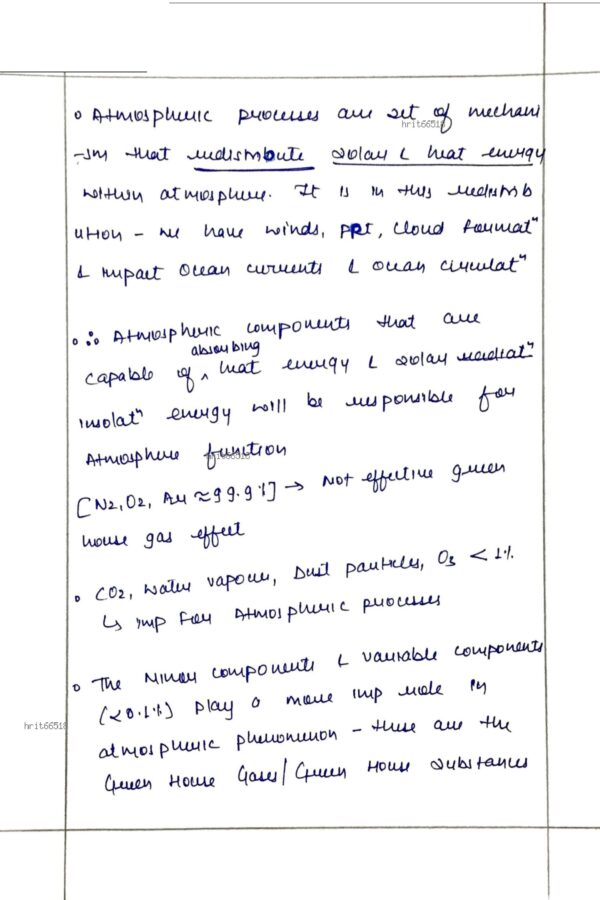 o Atmospheric processes are set of mechani
hrit66518
-sm that redistribute solar & heat energy
within atmosphere. It is in this redistrib
ution - we have winds, ppt, cloud formatⁿ
& impact ocean currents & ocean circulatⁿ
o ∴ Atmospheric components that are
absorbing
capable of ^ heat energy & solar radiatⁿ
insolatⁿ energy will be responsible for
Atmosphere function
hrit66518
[N2, O2, Ar ≈ 99.9%] → Not effective green
house gas effect
o CO2, water vapour, Dust particles, O3 < 1%
↳ imp for Atmospheric processes
o The Minor components & variable components
(<0.1%) play a more imp role in
hrit66518
atmospheric phenomenon - these are the
Green House Gases/Green House substances